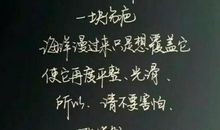 一块伤疤
海洋漫过来只是想覆盖它
使它再度平整、光滑、
所以、请不要害怕、